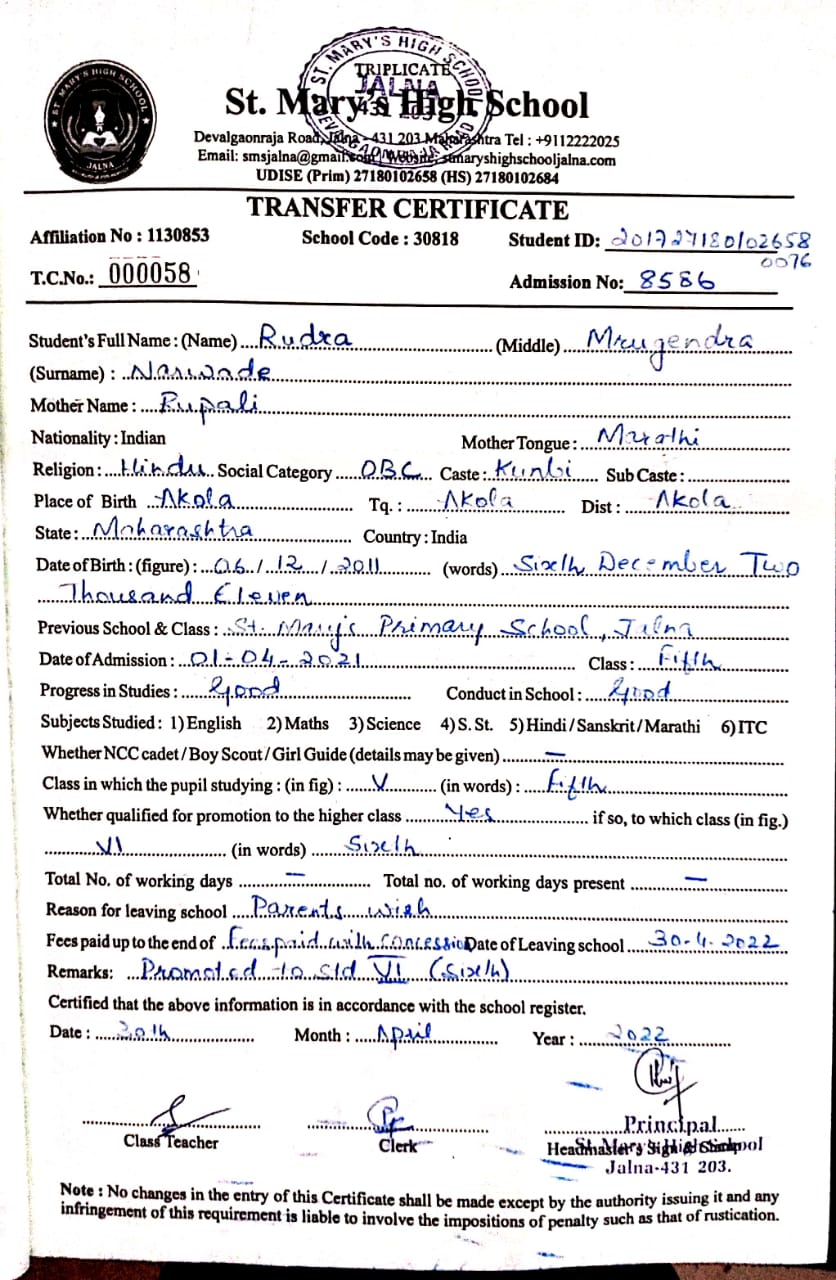 ST. MARY'S HIGH SCHOOL
JALNA
ST. MARY'S HIGH SCHOOL
TRIPLICATE
JALNA
431 203
DEVALGAONRAJA ROAD
St. Mary's High School
Devalgaonraja Road, Jalna - 431 203 Maharashtra Tel : +9112222025
Email: smsjalna@gmail.com, Website: stmaryshighschooljalna.com
UDISE (Prim) 27180102658 (HS) 27180102684
TRANSFER CERTIFICATE
Affiliation No : 1130853 School Code : 30818 Student ID: 201727180102658
0076
T.C.No.: 000058 Admission No: 8586
Student's Full Name : (Name) Rudra (Middle) Mrugendra
(Surname) : Narwade
Mother Name : Rupali
Nationality : Indian Mother Tongue : Marathi
Religion : Hindu Social Category OBC Caste : Kunbi Sub Caste :
Place of Birth Akola Tq. : Akola Dist : Akola
State : Maharashtra Country : India
Date of Birth : (figure) : 06 / 12 / 2011 (words) Sixth December Two
Thousand Eleven
Previous School & Class : St. Mary's Primary School, Jalna
Date of Admission : 01-04-2021 Class : Fifth
Progress in Studies : Good Conduct in School : Good
Subjects Studied : 1) English 2) Maths 3) Science 4) S. St. 5) Hindi / Sanskrit / Marathi 6) ITC
Whether NCC cadet / Boy Scout / Girl Guide (details may be given) —
Class in which the pupil studying : (in fig) : V (in words) : Fifth
Whether qualified for promotion to the higher class Yes if so, to which class (in fig.)
VI (in words) Sixth
Total No. of working days — Total no. of working days present —
Reason for leaving school Parents wish
Fees paid up to the end of Fees paid with concession Date of Leaving school 30-4-2022
Remarks: Promoted to std VI (Sixth)
Certified that the above information is in accordance with the school register.
Date : 30th Month : April Year : 2022
Class Teacher Clerk Headmaster's Sign & Stamp
Principal
St. Mary's High School
Jalna-431 203.
Note : No changes in the entry of this Certificate shall be made except by the authority issuing it and any
infringement of this requirement is liable to involve the impositions of penalty such as that of rustication.